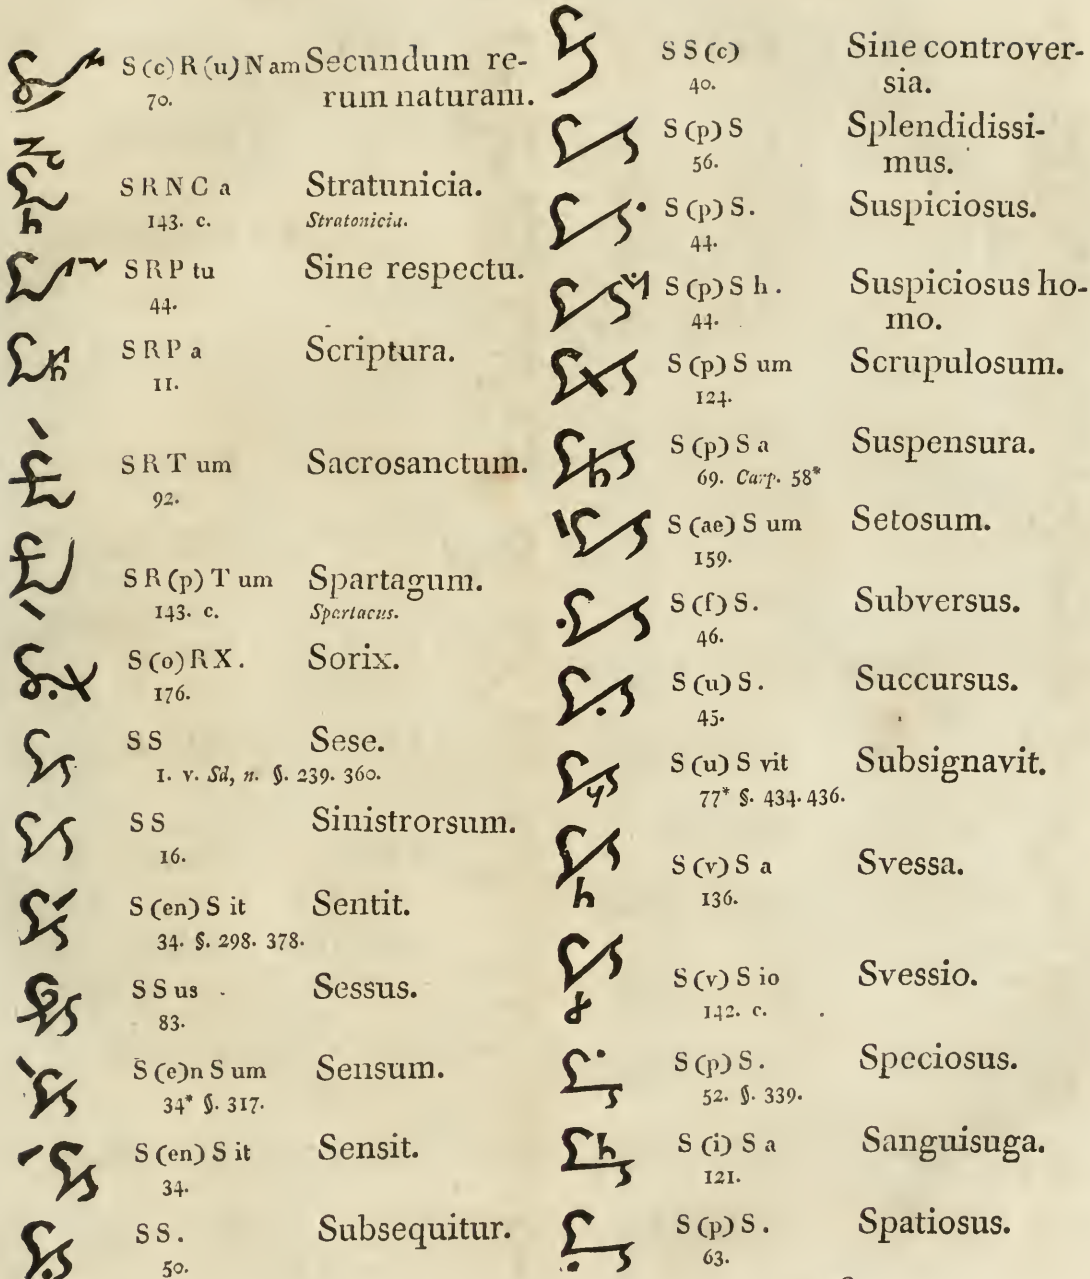 S (c) R (u) Nam Secundum re-
70. rum naturam.
S R N C a Stratunicia.
143. c. Stratonicia.
S R P tu Sine respectu.
44.
S R P a Scriptura.
11.
S R T um Sacrosanctum.
92.
S R (p) T um Spartagum.
143. c. Spartacus.
S (o) R X . Sorix.
176.
S S Sese.
1. v. Sd, n. §. 239. 360.
S S Sinistrorsum.
16.
S (en) S it Sentit.
34. §. 298. 378.
S S us Sessus.
83.
S (e)n S um Sensum.
34* §. 317.
S (en) S it Sensit.
34.
S S . Subsequitur.
50.
S S (c) Sine controver-
40. sia.
S (p) S Splendidissi-
56. mus.
S (p) S . Suspiciosus.
44.
S (p) S h . Suspiciosus ho-
44. mo.
S (p) S um Scrupulosum.
124.
S (p) S a Suspensura.
69. Carp. 58*
S (ae) S um Setosum.
159.
S (f) S . Subversus.
46.
S (u) S . Succursus.
45.
S (u) S vit Subsignavit.
77* §. 434. 436.
S (v) S a Svessa.
136.
S (v) S io Svessio.
142. c.
S (p) S . Speciosus.
52. §. 339.
S (i) S a Sanguisuga.
121.
S (p) S . Spatiosus.
63.